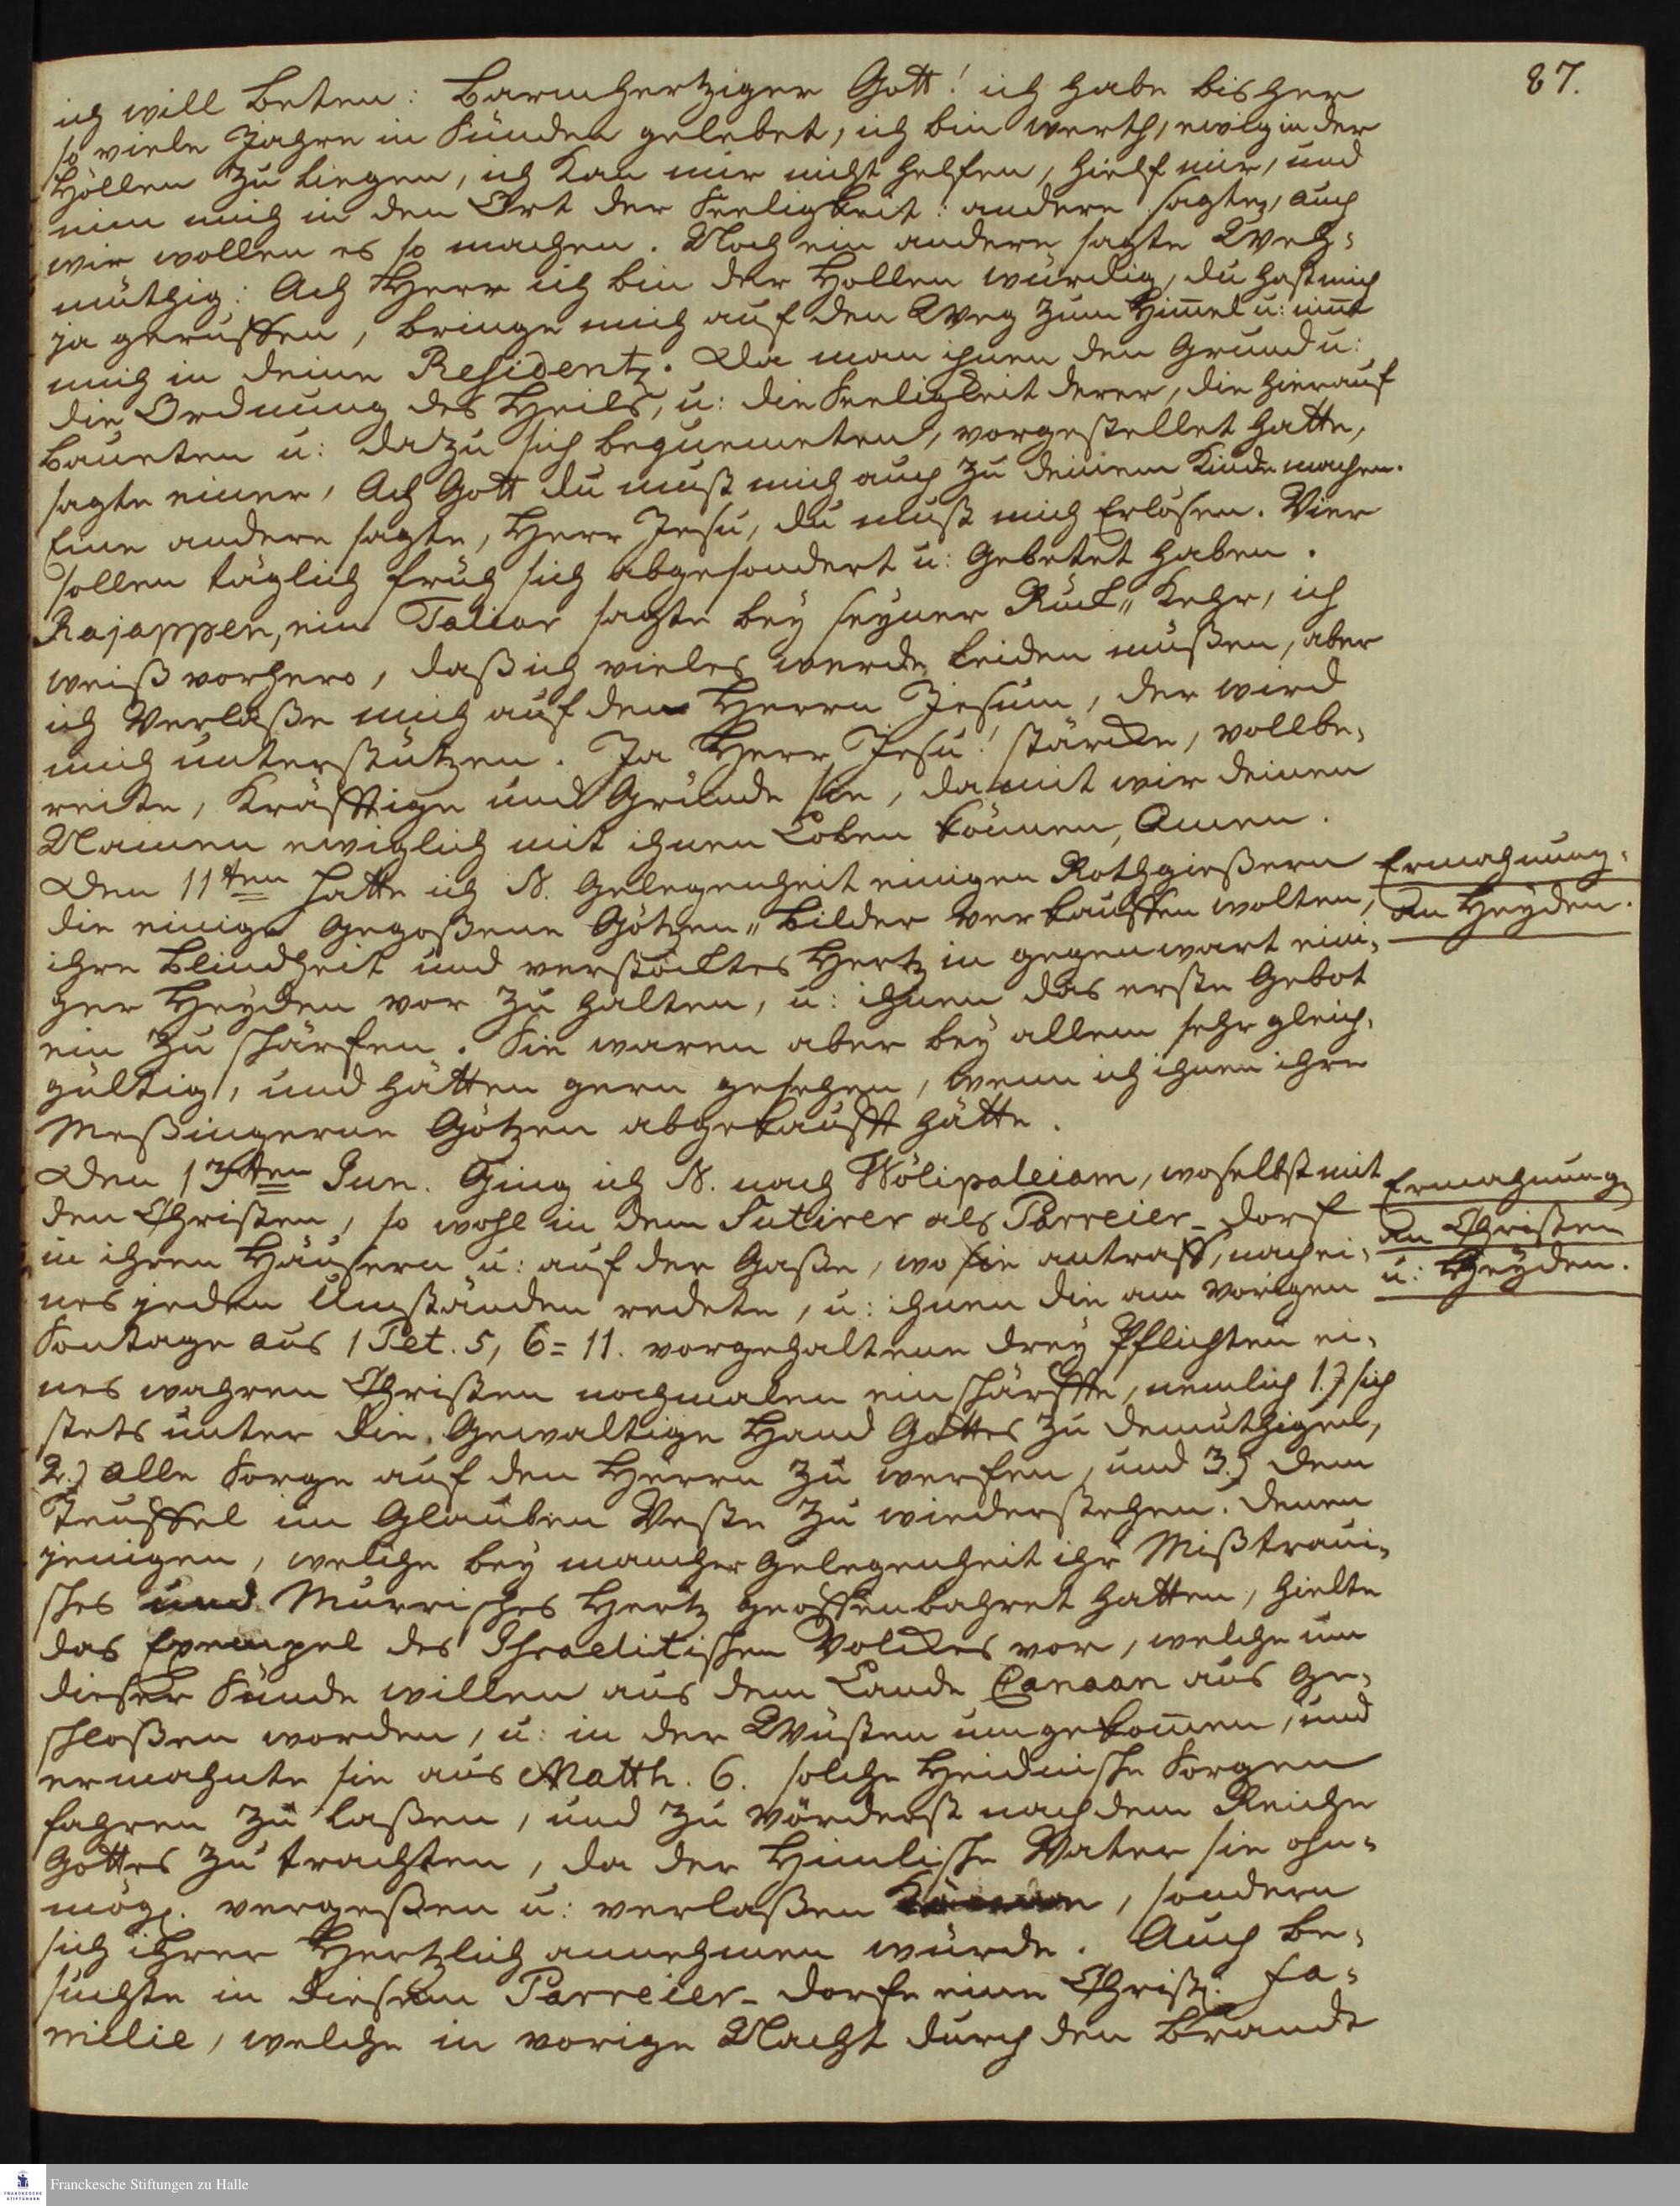 87.
ich will beten: Barmhertziger Gott! ich habe bisher
so viele Jahre in Sünden gelebet, ich bin werth, ewig in der
Höllen zu liegen, ich kan mir nicht helfen, hielf mir, und
nim mich in den Ort der Seeligkeit: andere sagten, auch
wir wollen es so machen. Noch ein andere sagte Weh-
müthig: Ach Herr ich bin der Hollen würdig, du hast mich
ja geruffen, bringe mich auf den Weg zum Him̄el u: nim̄t
mich in deine Residentz. Da man ihnen den Grund u:
die Ordnung des Heils, u: die Seeligkeit derer, die hierauf
baueten u: dazu sich bequemeten, vorgestellet hatte,
sagte einer, Ach Gott du must mich auch zu deinem Kinde machen.
Eine andere sagte, Herr Jesu, du must mich Erlösen. Vier
sollen täglich früh sich abgesondert u: Gebetet haben.
Rajappen, ein Taliar sagte bey seyner Rück„ Kehr, ich
weiß vorhero, daß ich vieles werde leiden müßen, aber
ich Verlaße mich auf den Herrn Jesum, der wird
mich unterstützen. Ja Herr Jesu! stärcke, vollbe-
reite, Kräfftige und Gründe sie, damit wir deinen
Namen ewiglich mit ihnen Loben können, Amen.
Den 11ten hatte ich N. Gelegenheit einigen Rothgießern
die einige Gegoßene Götzen„ Bilder verkauffen wolten,
ihre Blindheit und verstocktes Hertz in gegenwart eini-
ger Heyden vor zu halten, u: ihnen das erste Gebot
ein zu schärfen. Sie waren aber bey allem sehr gleich-
gültig, und hätten gern gesehen, wenn ich ihnen ihre
Meßingerne Götzen abgekaufft hätte.
Ermahnung-
an Heyden.
Den 13ten Jun. Ging ich N. nach Wölipaleiam, woselbst mit
den Christen, so wohl in dem Sutirer als Parreier-dorf
in ihren Häusern u: auf der Gaße, wo sie antraff, nach ei-
nes jeden Umständen redete, u: ihnen die am vorigen
Sontage aus 1 Pet. 5, 6=11. vorgehaltene drey Pflichten ei-
nes wahren Christen nochmalen ein schärffte, nemlich 1.) sich
stets unter die Gewaltige Hand Gottes zu demüthigen,
2.) alle Sorge auf den Herrn zu werfen, und 3.) dem
Teuffel im Glauben Veste zu wiederstehen. denen
jenigen, welche bey mancher Gelegenheit ihr Mißtraui-
sches und Murrisches Hertz geoffenbahret hatten, hielte
das Exempel des Israelitischen Volckes vor, welche um
dieser Sünde willen aus dem Lande Canaan aus ge-
schloßen worden, u: in der Wüsten umgekom̄en, und
ermahnte sie aus Matth. 6. solche Heidnische Sorgen
fahren zu laßen, und zu vörderst nach dem Reiche
Gottes zu trachten, da der Himlische Vater sie ohn-
mögl. vergeßen u: verlaßen, sondern
sich ihrer Hertzlich annehmen würde. Auch be-
suchte in diesem Parreier-dorfe eine Christl. Fa-
milie, welche in vorige Nacht durch den Brandt
Ermahnung
an Christen
u: Heyden.
Franckesche Stiftungen zu Halle
FRANCKESCHE
STIFTUNGEN